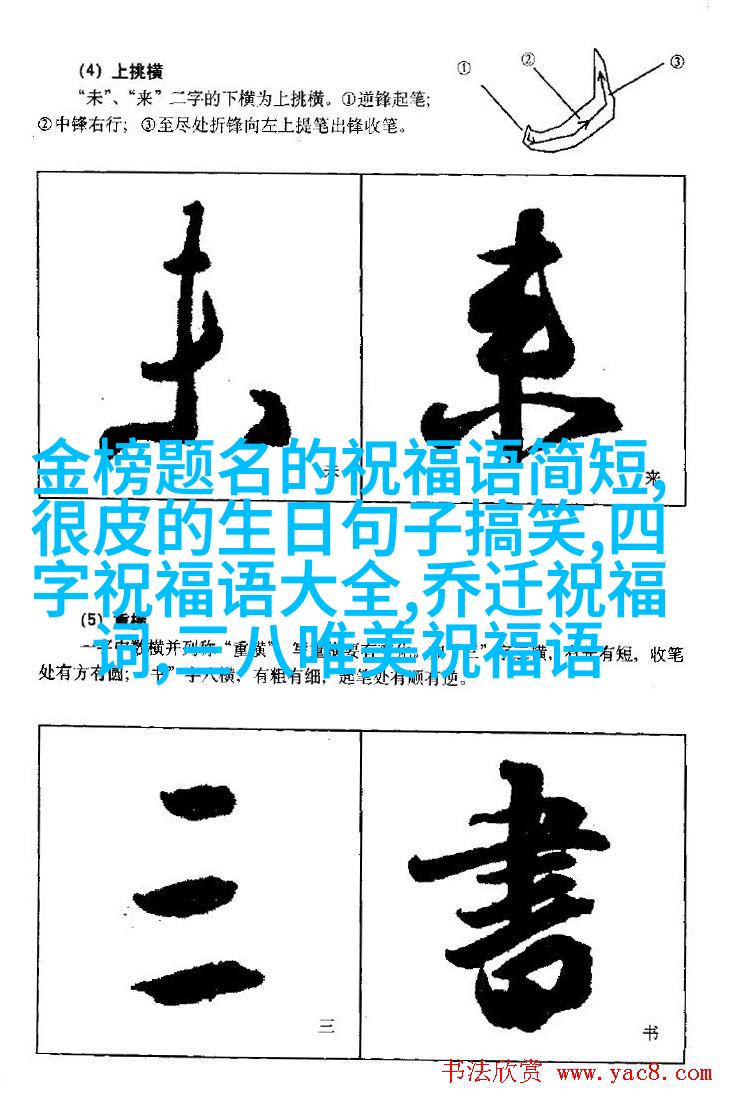 （4）上挑横
“未”、“来”二字的下横为上挑横。①逆锋起笔；
②中锋右行；③至尽处折锋向左上提笔出锋收笔。
① ② ③
未 来
未 来
金榜题名的祝福语简短,
很皮的生日句子搞笑,四
字祝福语大全,乔迁祝福
词,三八唯美祝福语
（5）重横
数横并列称“重横”
有短，收笔
处有方有圆；“书”字八横，有粗有细，起笔处有顺有逆。
三 書
三 书
书法欣赏 www.yac8.com